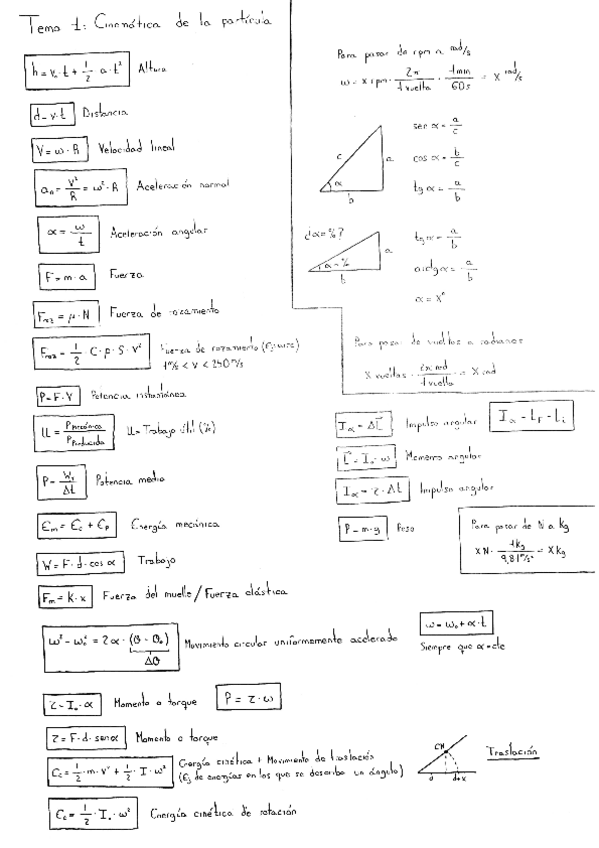 Tema 1: Cinemática de la partícula
h = v₀·t + 1/2 · a·t² Altura
d = v·t Distancia
V = ω·R Velocidad lineal
aₙ = V²/R = ω²·R Aceleración normal
α = ω/t Aceleración angular
F = m·a Fuerza
Froz = μ·N Fuerza de rozamiento
Froz = 1/2 · C·ρ·S·V² Fuerza de rozamiento
1 m/s < v < 250 m/s
P = F·V Potencia instantánea
P mecánica / P producida
U = Trabajo útil
P = W/Δt Potencia media
Em = Ec + Cp Energía mecánica
W = F·d·cos α Trabajo
Fm = K·x Fuerza del muelle / Fuerza elástica
ω² - ω₀² = 2α·(θ - θ₀) Movimiento circular uniformemente acelerado
Δθ
τ = I₀·α Momento o torque P = τ·ω
τ = F·d·sen α Momento o torque
Cc = 1/2·m·v² + 1/2·I·ω² Energía cinética + Movimiento de traslación
(Ej de energías en los que se describe un ángulo)
Cc = 1/2 · I₀·ω² Energía cinética de rotación
Para pasar de rpm a rad/s
ω = X rpm · 2π/1 vuelta · 1 min/60 s = X rad/s
c
a
α
b
sen α = a/c
cos α = b/c
tg α = a/b
¿α = %?
α = %
a
b
tg α = a/b
α = X°
Para pasar de vueltas a radianes
X vueltas · 2π rad/1 vuelta = X rad
Iα = ΔL Impulso angular Iα = Lf - Li
L = I₀·ω Momento angular
Iα = τ·Δt Impulso angular
P = m·g Peso
Para pasar de N a kg
X N · 1 kg/9,81 m/s² = X kg
ω = ω₀ + α·t
Siempre que α = cte
CM
0
d+x
Traslación